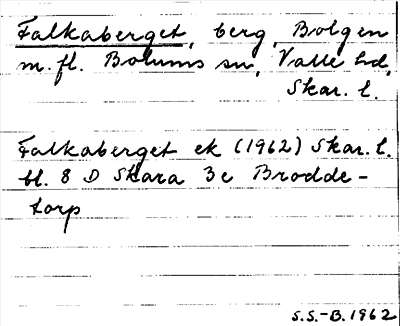 Falkaberget, berg, Bolgen
m.fl. Bolums sn, Valle hd,
Skar. l.
Falkaberget ek (1962) Skar. l.
bl. 8 D Skara 3c Brodde-
torp
S.S.-B. 1962